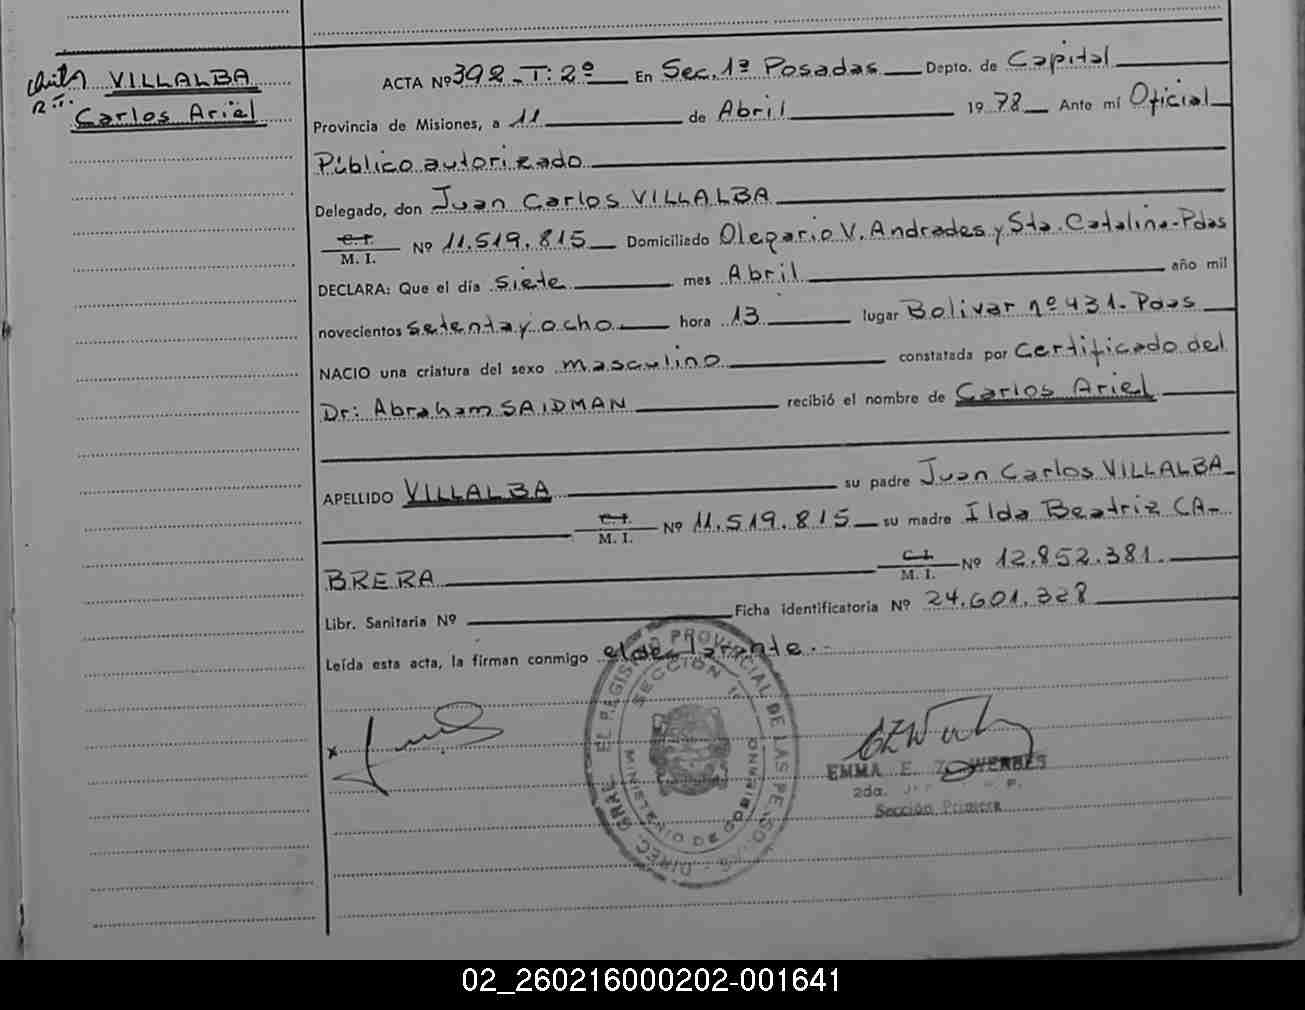 VILLALBA
Carlos Ariel
ACTA Nº 392-T:2º En Sec. 1ª Posadas Depto. de Capital
Provincia de Misiones, a 11 de Abril 1978 Ante mí Oficial
Público autorizado
Delegado, don Juan Carlos VILLALBA
C.I. M. I. Nº 11.519.815 Domiciliado Olegario V. Andrades y Sta. Catalina-Pdas
DECLARA: Que el día siete mes Abril año mil
novecientos setenta y ocho hora 13 lugar Bolivar nº 431-Pdas
NACIO una criatura del sexo masculino constatada por Certificado del
Dr: Abraham SAIDMAN recibió el nombre de Carlos Ariel
APELLIDO VILLALBA su padre Juan Carlos VILLALBA
C.I. M. I. Nº 11.519.815 su madre Ilda Beatriz CA-
BRERA C.I. M. I. Nº 12.852.381.
Libr. Sanitaria Nº Ficha identificatoria Nº 24.601.328
Leída esta acta, la firman conmigo el declarante.-
DIREC. GRAL. EL REGISTRO PROVINCIAL DE LAS PERSONAS
SECCION 1ª
MINISTERIO DE GOBIERNO
EMMA E. Z.
2da.
Sección Primera
02_260216000202-001641